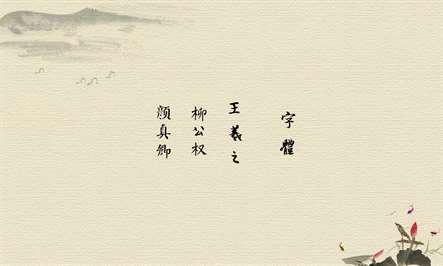 字體
王羲之
柳公权
颜真卿